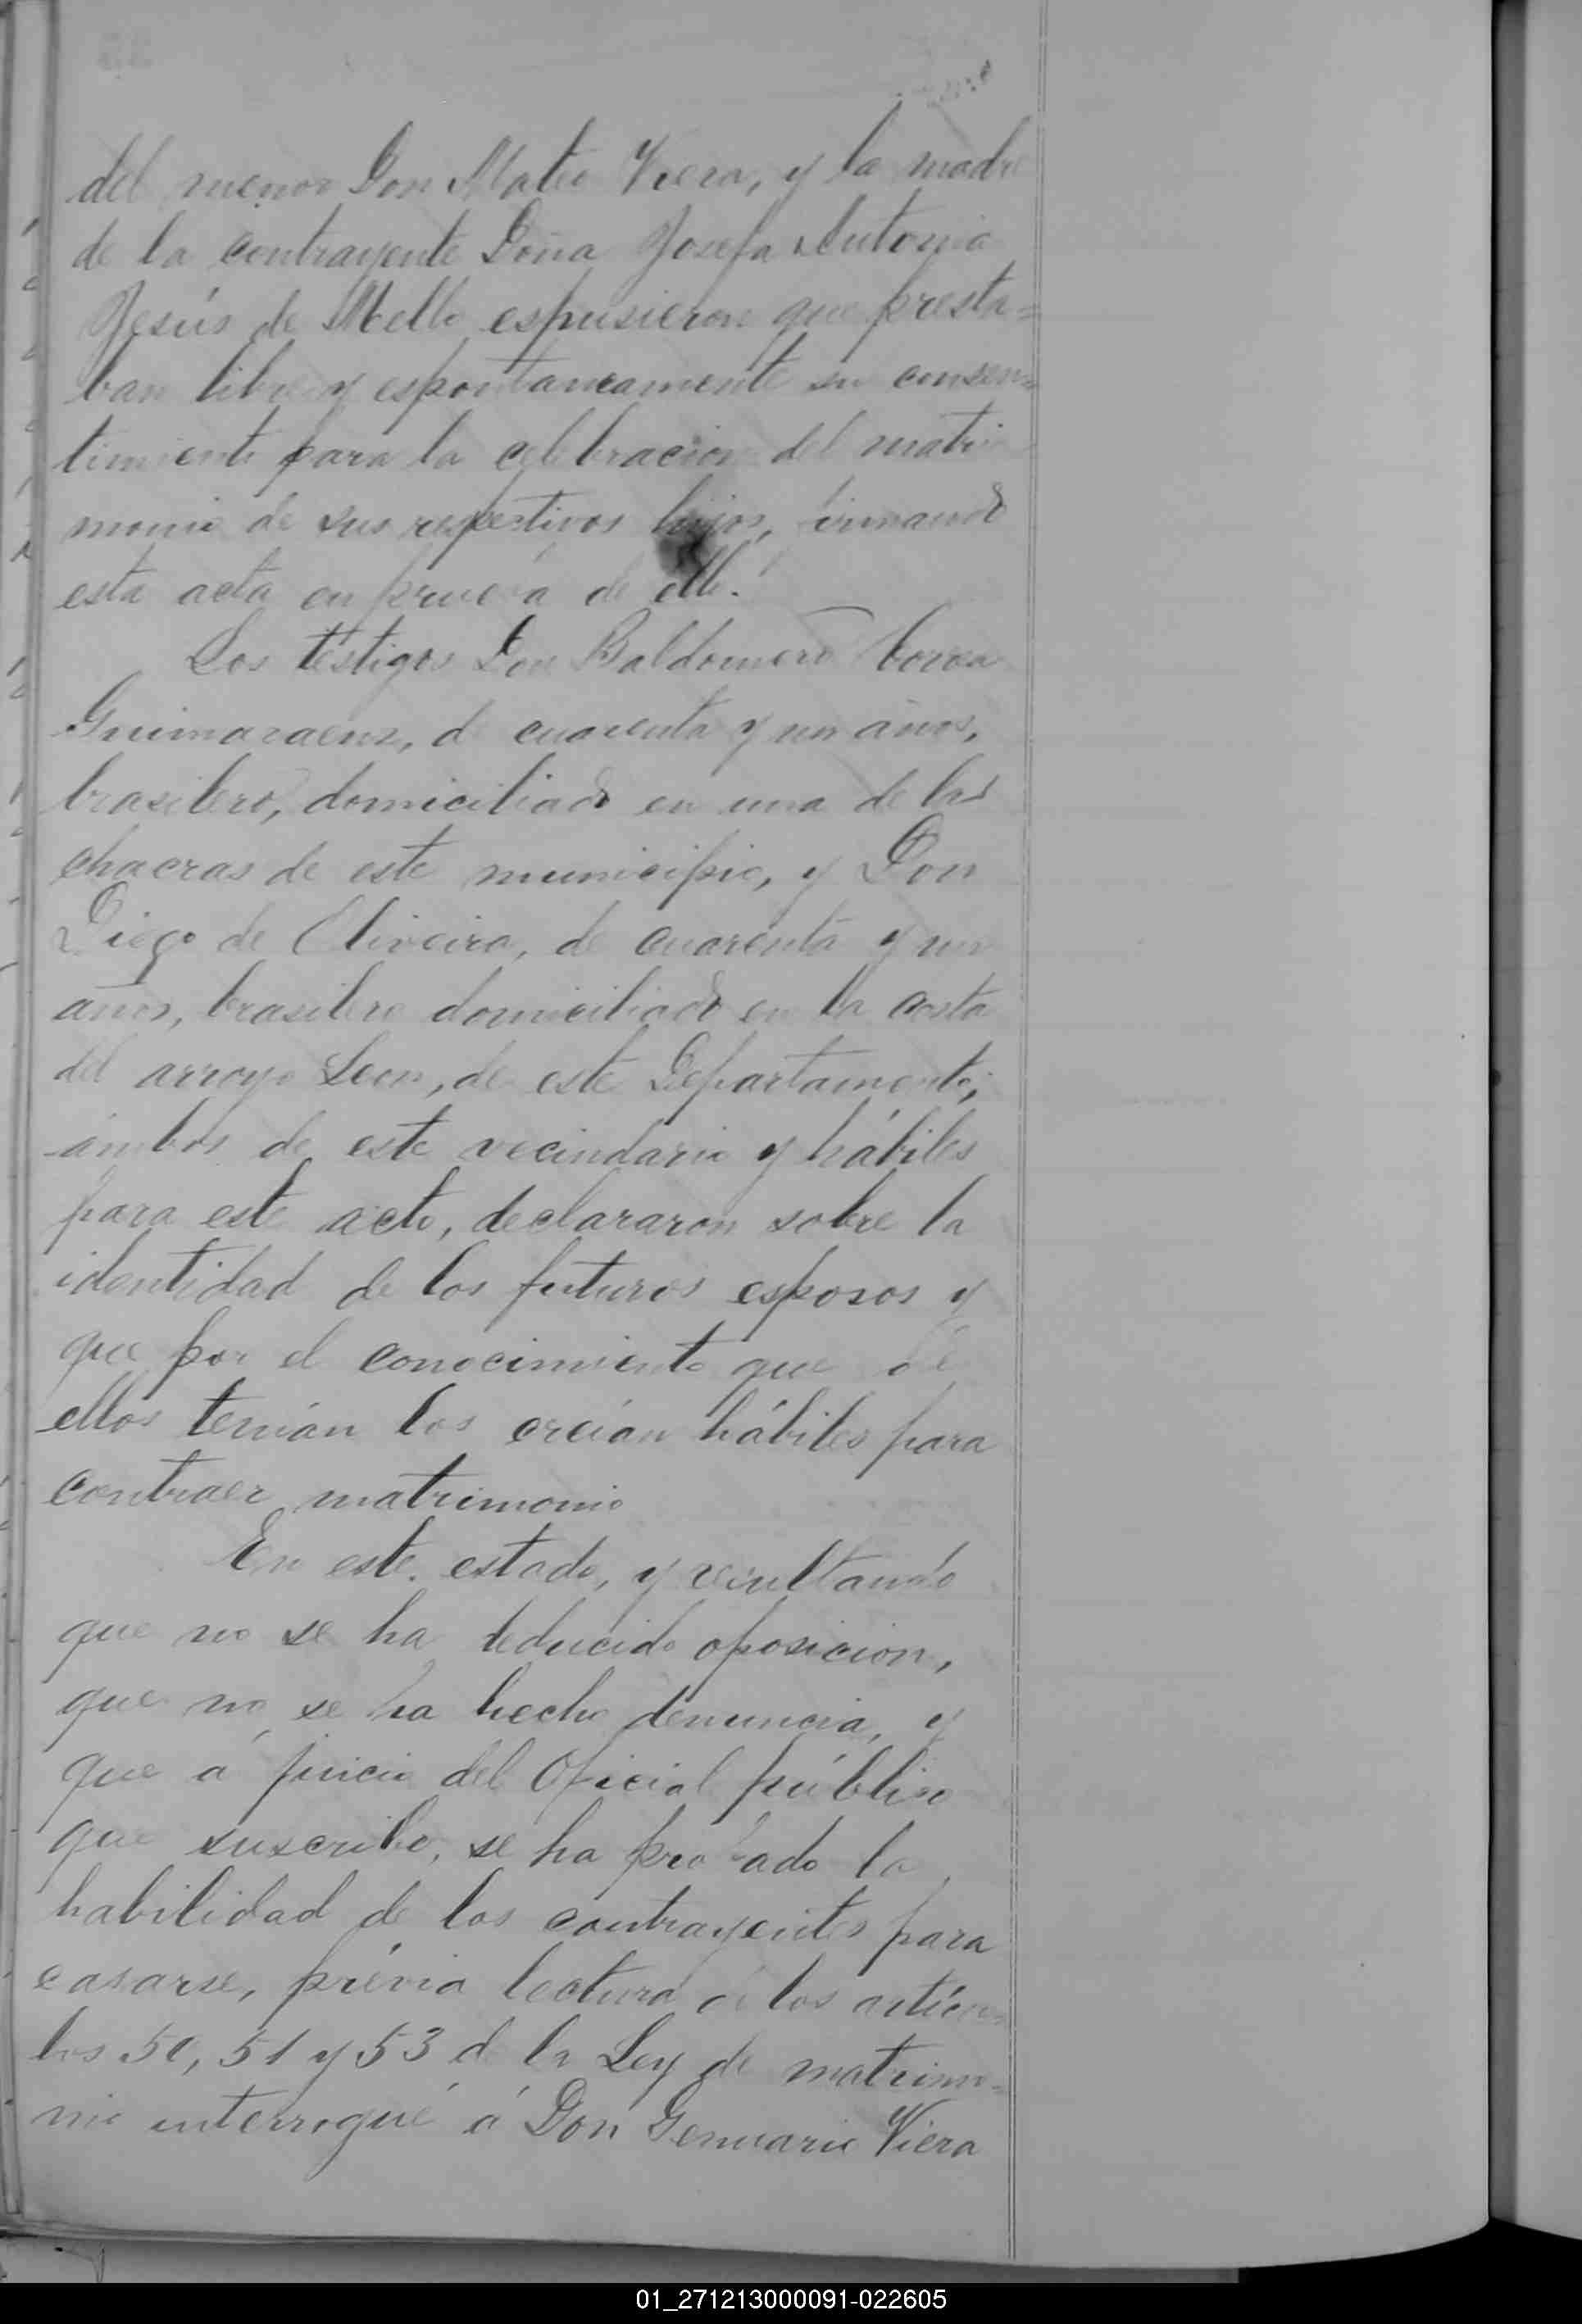 del menor Don Mateo Viera, y la madre
de la contrayente Doña Josefa Antonia
Jesús de Mello espusieron que presta=
ban libre y espontaneamente su consen=
timiento para la celebracion del matri
monio de sus respectivos hijos, firmando
esta acta en prueba de ello.
Los testigos Don Baldomero
Guimaraens, de cuarenta y un años,
brasilero, domiciliado en una de las
chacras de este municipio, y Don
Diego de Oliveira, de cuarenta y un
años, brasilero domiciliado en la costa
del arroyo Leon, de este Departamento;
ámbos de este vecindario y hábiles
para este acto, declararon sobre la
identidad de los futuros esposos y
que por el conocimiento que de
ellos tenían los creían hábiles para
contraer matrimonio
En este estado, y resultando
que no se ha deducido oposicion,
que no se ha hecho denuncia, y
que á juicio del Oficial público
que suscribe, se ha probado la
habilidad de los contrayentes para
casarse, prévia lectura de los artícu
los 50, 51 y 53 de la Ley de matrimo=
nio interrogué á Don Genuario Viera
01_271213000091-022605